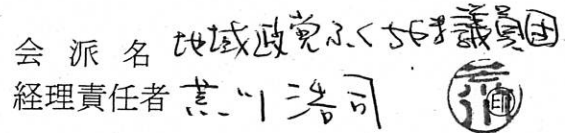 会派名 地域政党ふくちやま議員団
経理責任者 荒川浩司 ㊞